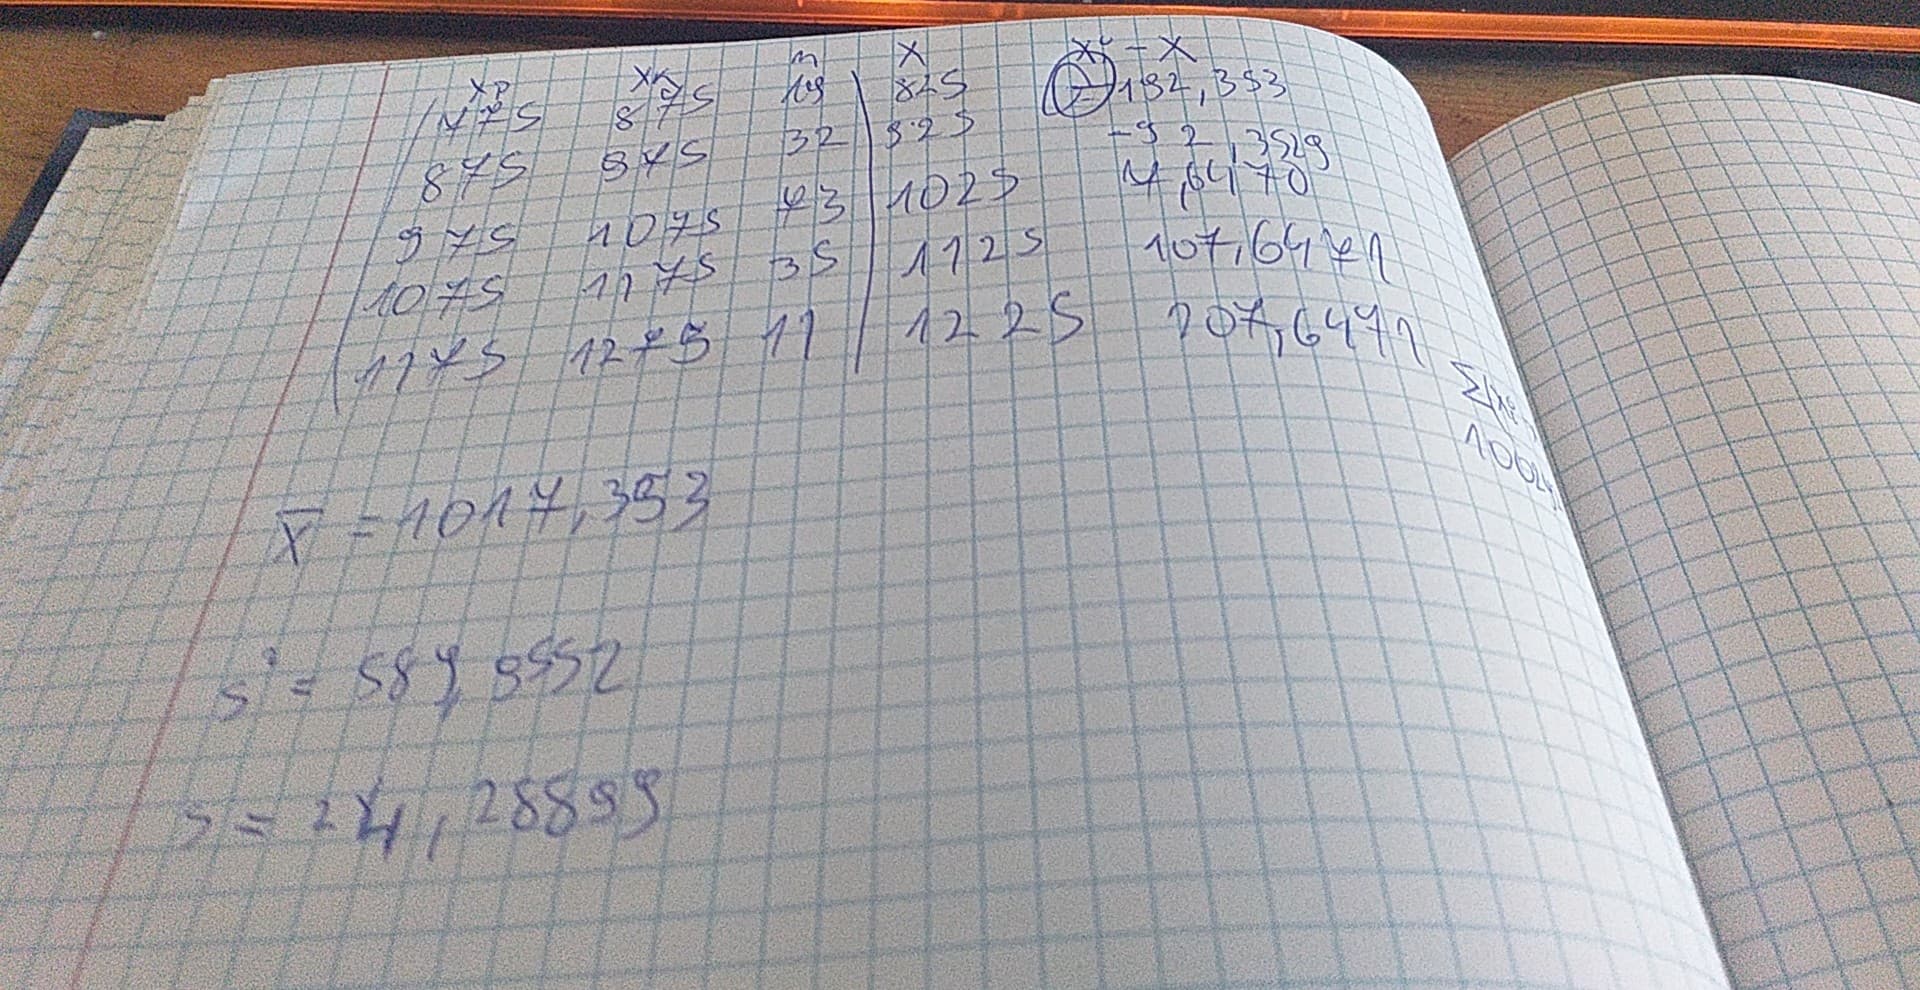 xp xk n x xi - x
775 875 19 825 -192,353
875 975 32 925 -92,3529
975 1075 73 1025 7,64170
1075 1175 35 1125 107,6471
1175 1275 11 1225 207,6471
Σ(xi
10024
x̄ = 1017,353
s² = 589,9552
s = 24,28899